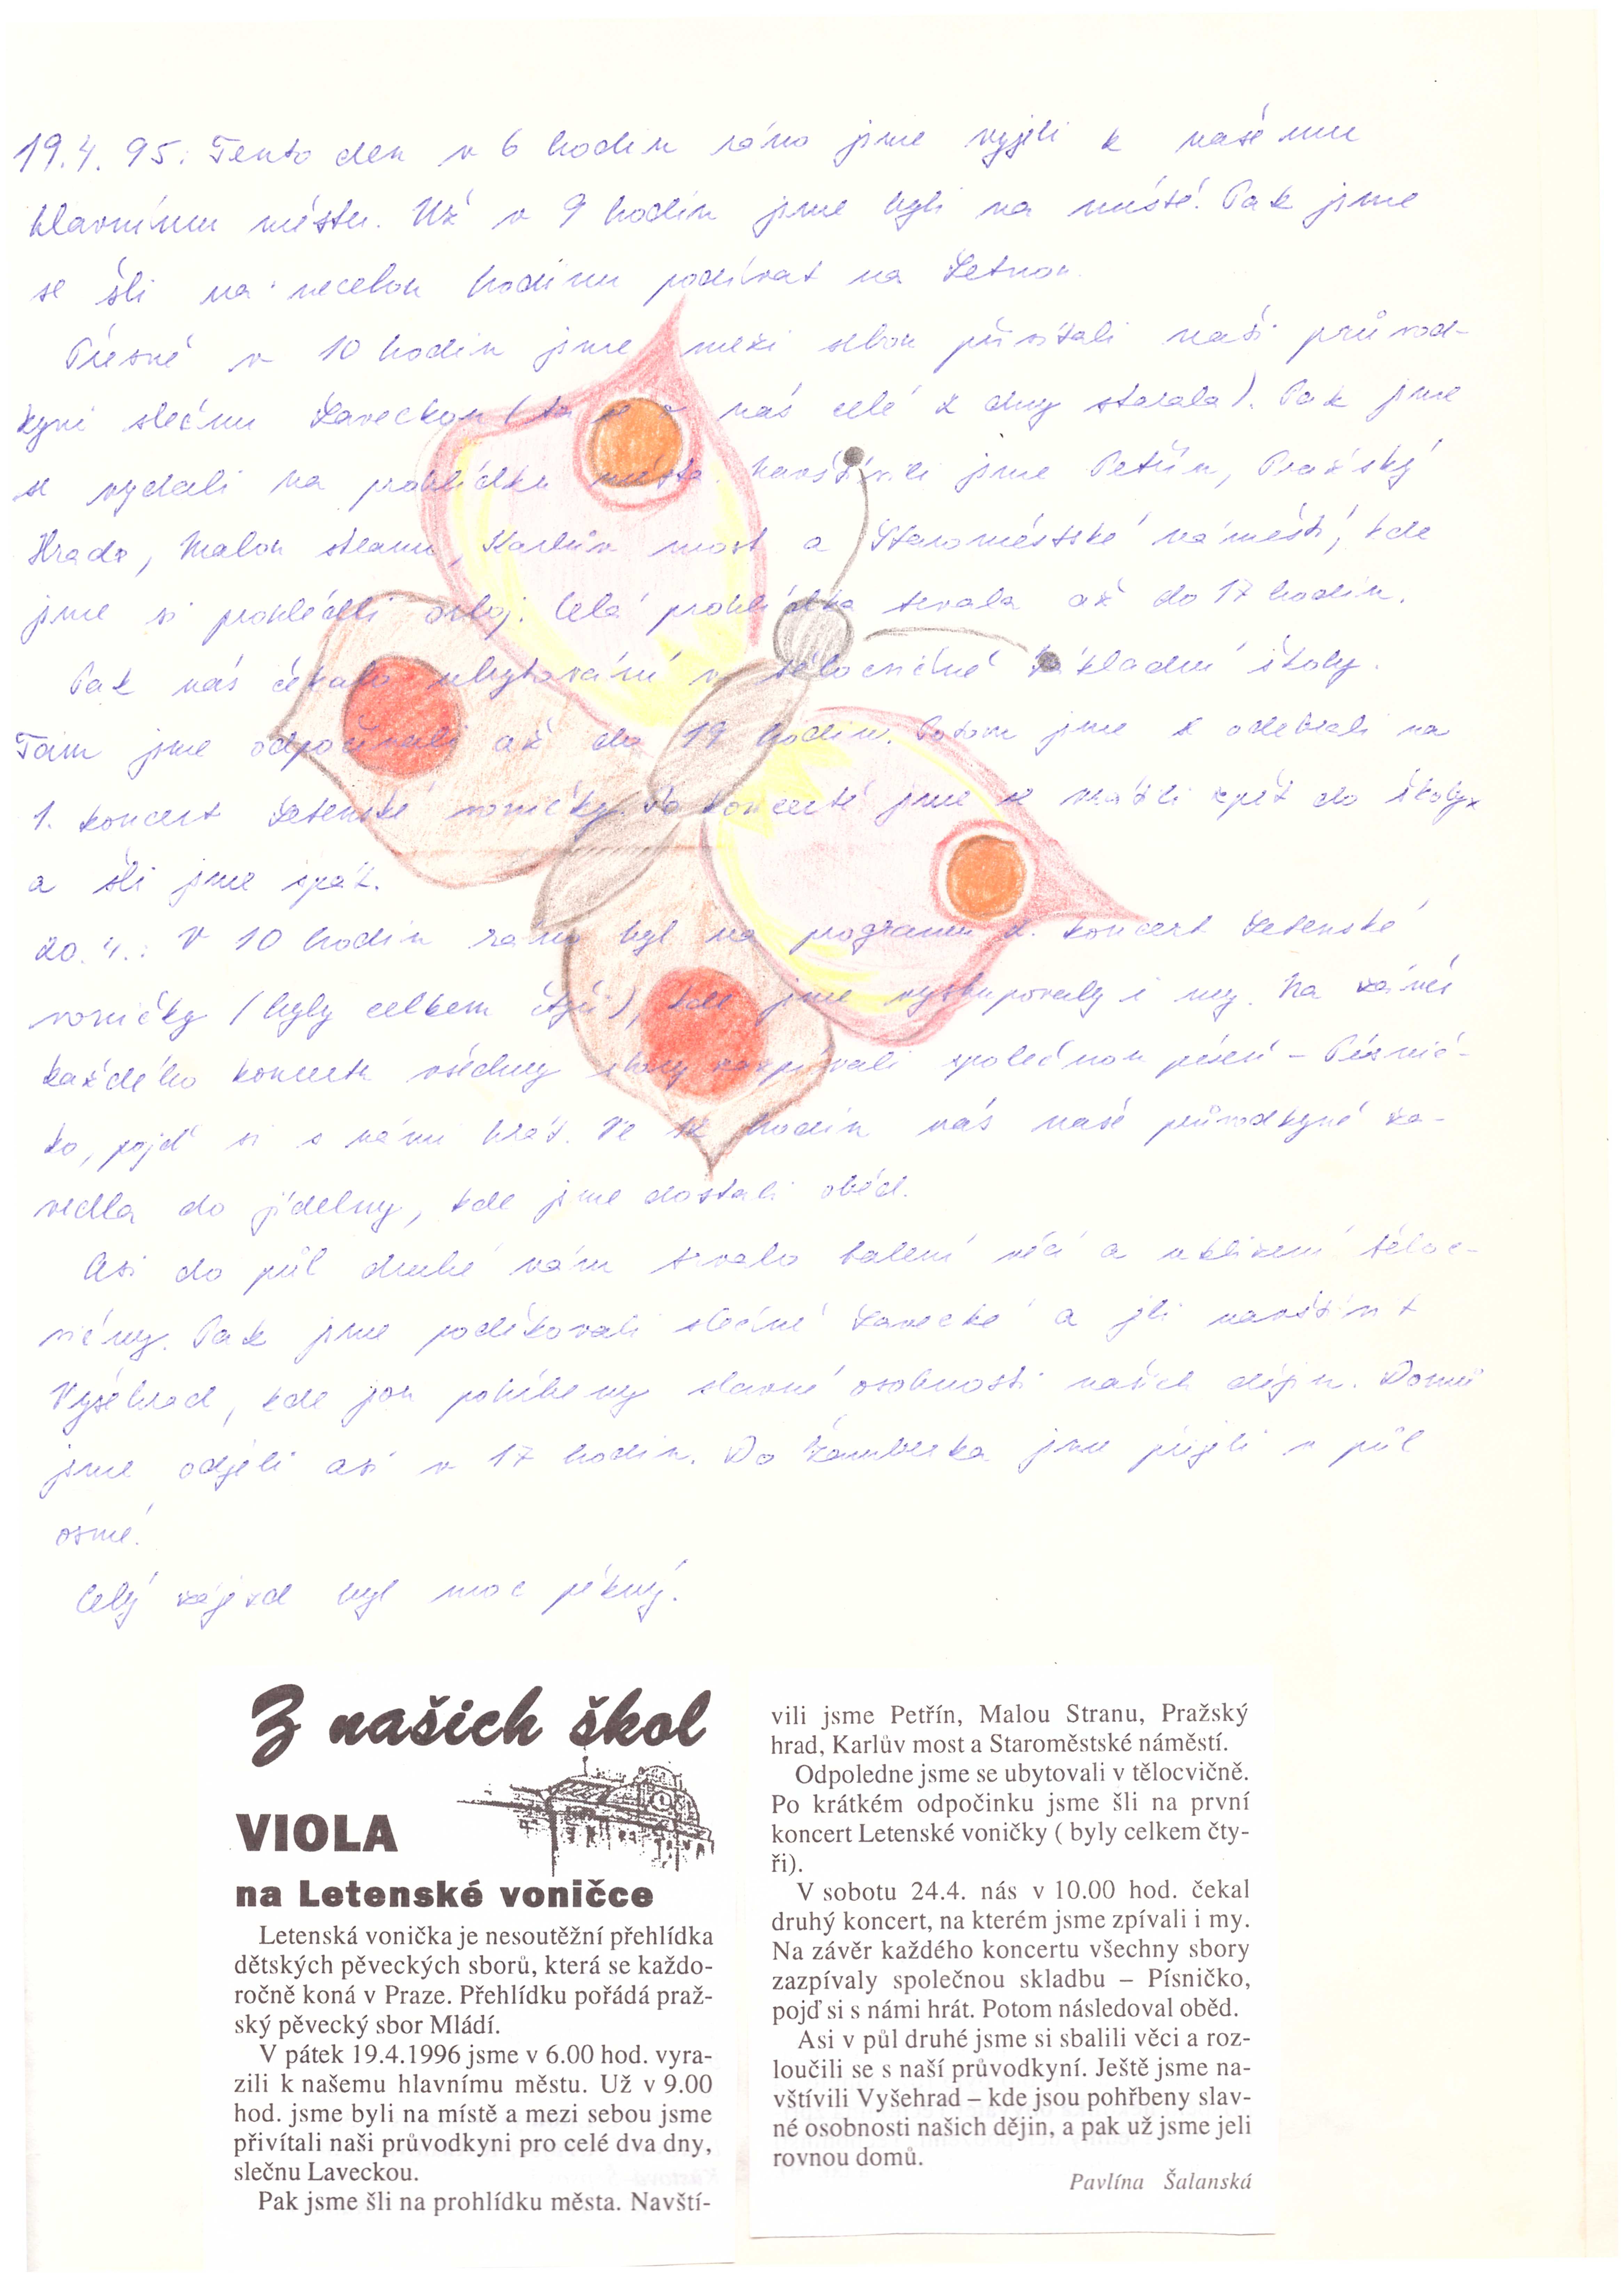 19.4. 95: Tento den v 6 hodin ráno jsme vyjeli k našemu
hlavnímu městu. Už v 9 hodin jsme byli na místě. Pak jsme
se šli na necelou hodinu podívat na Letnou.
Přesně v 10 hodin jsme mezi sebou přivítali naši průvod-
kyni slečnu Laveckou (ta se o nás celé 2 dny starala). Pak jsme
se vydali na prohlídku města. Navštívili jsme Petřín, Pražský
Hrad, Malou stranu, Karlův most a Staroměstské náměstí, kde
jsme si prohlédli orloj. Celá prohlídka trvala až do 17 hodin.
Pak nás čekalo ubytování v tělocvičně základní školy.
Tam jsme odpočívali až do 19 hodin. Potom jsme se odebrali na
1. koncert Letenské voničky. Po koncertě jsme se vrátili zpět do školy
a šli jsme spát.
20.4.: V 10 hodin ráno byl na programu 2. koncert Letenské
voničky (byly celkem čtyři), kde jsme vystupovaly i my. Na závěr
každého koncertu všechny sbory zazpívali společnou píseň - Písnič-
ko, pojď si s námi hrát. Ve 12 hodin nás naše průvodkyně za-
vedla do jídelny, kde jsme dostali oběd.
Asi do půl druhé nám trvalo balení věcí a uklizení těloc-
vičny. Pak jsme poděkovali slečně Lavecké a jeli navštívit
Vyšehrad, kde jsou pohřbeny slavné osobnosti našich dějin. Domů
jsme odjeli asi v 17 hodin. Do Žamberka jsme přijeli v půl
osmé.
Celý zájezd byl moc pěkný.
Z našich škol
VIOLA
na Letenské voničce
Letenská vonička je nesoutěžní přehlídka
dětských pěveckých sborů, která se každo-
ročně koná v Praze. Přehlídku pořádá praž-
ský pěvecký sbor Mládí.
V pátek 19.4.1996 jsme v 6.00 hod. vyra-
zili k našemu hlavnímu městu. Už v 9.00
hod. jsme byli na místě a mezi sebou jsme
přivítali naši průvodkyni pro celé dva dny,
slečnu Laveckou.
Pak jsme šli na prohlídku města. Navští-
vili jsme Petřín, Malou Stranu, Pražský
hrad, Karlův most a Staroměstské náměstí.
Odpoledne jsme se ubytovali v tělocvičně.
Po krátkém odpočinku jsme šli na první
koncert Letenské voničky ( byly celkem čty-
ři).
V sobotu 24.4. nás v 10.00 hod. čekal
druhý koncert, na kterém jsme zpívali i my.
Na závěr každého koncertu všechny sbory
zazpívaly společnou skladbu – Písničko,
pojď si s námi hrát. Potom následoval oběd.
Asi v půl druhé jsme si sbalili věci a roz-
loučili se s naší průvodkyní. Ještě jsme na-
vštívili Vyšehrad – kde jsou pohřbeny slav-
né osobnosti našich dějin, a pak už jsme jeli
rovnou domů.
Pavlína Šalanská